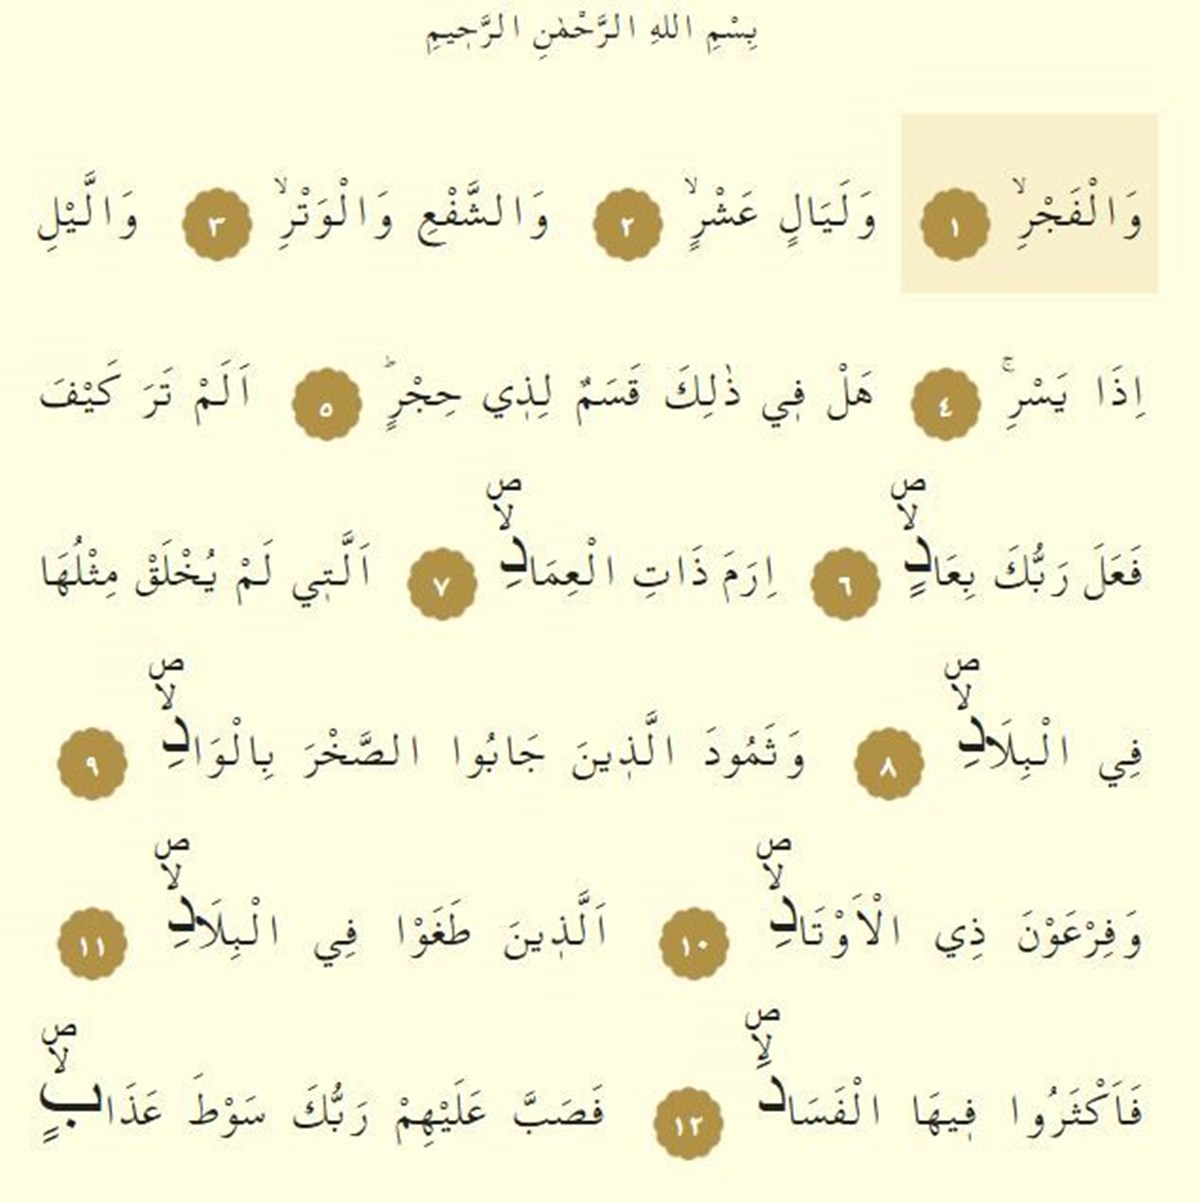 بِسْمِ اللهِ الرَّحْمٰنِ الرَّحٖيمِ
وَالْفَجْرِۙ ١ وَلَيَالٍ عَشْرٍۙ ٢ وَالشَّفْعِ وَالْوَتْرِۙ ٣ وَالَّيْلِ
اِذَا يَسْرِۚ ٤ هَلْ فٖي ذٰلِكَ قَسَمٌ لِذٖي حِجْرٍؕ ٥ اَلَمْ تَرَ كَيْفَ
فَعَلَ رَبُّكَ بِعَادٍۙۖ ٦ اِرَمَ ذَاتِ الْعِمَادِۙۖ ٧ اَلَّتٖي لَمْ يُخْلَقْ مِثْلُهَا
فِي الْبِلَادِۙۖ ٨ وَثَمُودَ الَّذٖينَ جَابُوا الصَّخْرَ بِالْوَادِۙۖ ٩
وَفِرْعَوْنَ ذِي الْاَوْتَادِۙۖ ١٠ اَلَّذٖينَ طَغَوْا فِي الْبِلَادِۙۖ ١١
فَاَكْثَرُوا فٖيهَا الْفَسَادَۙۖ ١٢ فَصَبَّ عَلَيْهِمْ رَبُّكَ سَوْطَ عَذَابٍۙۖ